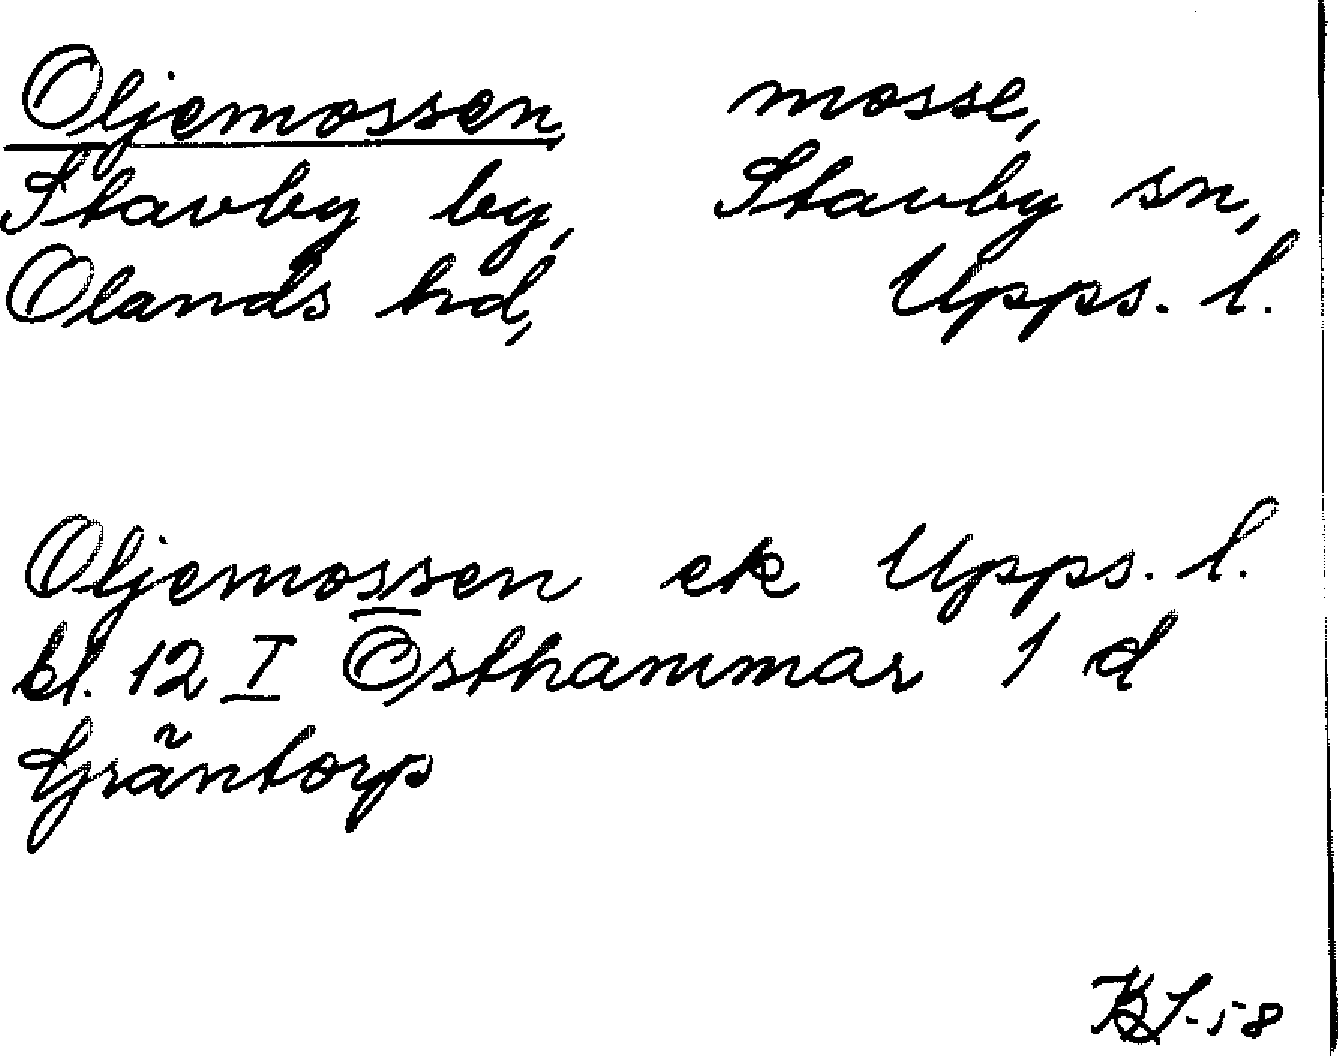 Oljemossen, mosse,
Stavby by, Stavby sn,
Olands hd, Upps. l.
Oljemossen ek Upps. l.
bl. 12 I Östhammar 1 d
Gräntorp